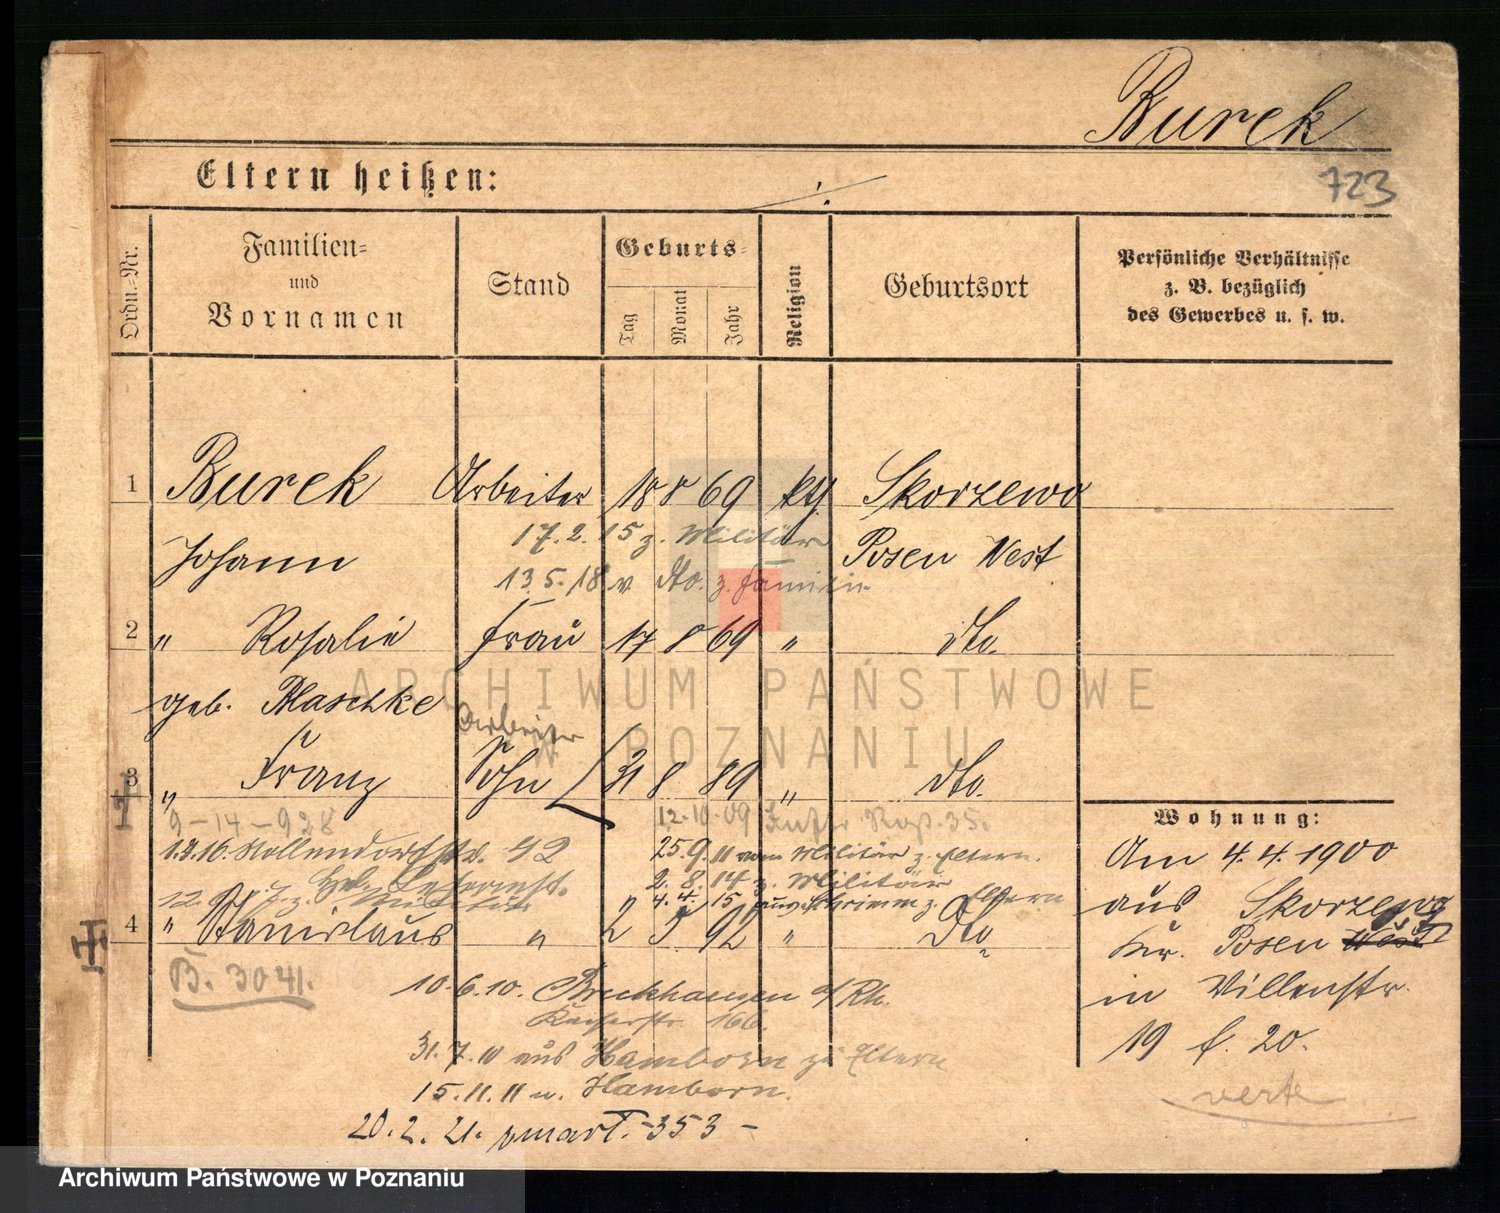 Burek
723
Eltern heißen:
Ordn.-Nr.
Familien-
und
Vornamen
Stand
Geburts-
Tag
Monat
Jahr
Religion
Geburtsort
Persönliche Verhältnisse
z. B. bezüglich
des Gewerbes u. s. w.
1 Burek Arbeiter 18 8 69 kth. Skorzewo
Johann 17.2.15 z. Militär Posen West
13.5.18 v. dto. z. Familie
2 " Rosalie Frau 17 8 69 " dto.
geb. Blaschke
Arbeiter
3 " Franz Sohn 31 8 89 " dto.
9-14-928 12.10.09
1.2.16. Stollendorfstr. 42 25.9.11 vom Militär z. Eltern.
2.8.14 z. Militär
12. z. Militär 4.4.15 z. Eltern
4 " Stanislaus " 2 92 " dto
B. 3041.
10.6.10. Bruckhausen a/Rh.
Kaiserstr. 166.
31.7.10 aus Hamborn zu Eltern
15.11.11 n. Hamborn.
20.2.21. zmarł. -353-
Wohnung:
Am 4.4.1900
aus Skorzewo
Kr. Posen West
in Villenstr.
19 b. 20.
verte
ARCHIWUM PAŃSTWOWE
W POZNANIU
Archiwum Państwowe w Poznaniu